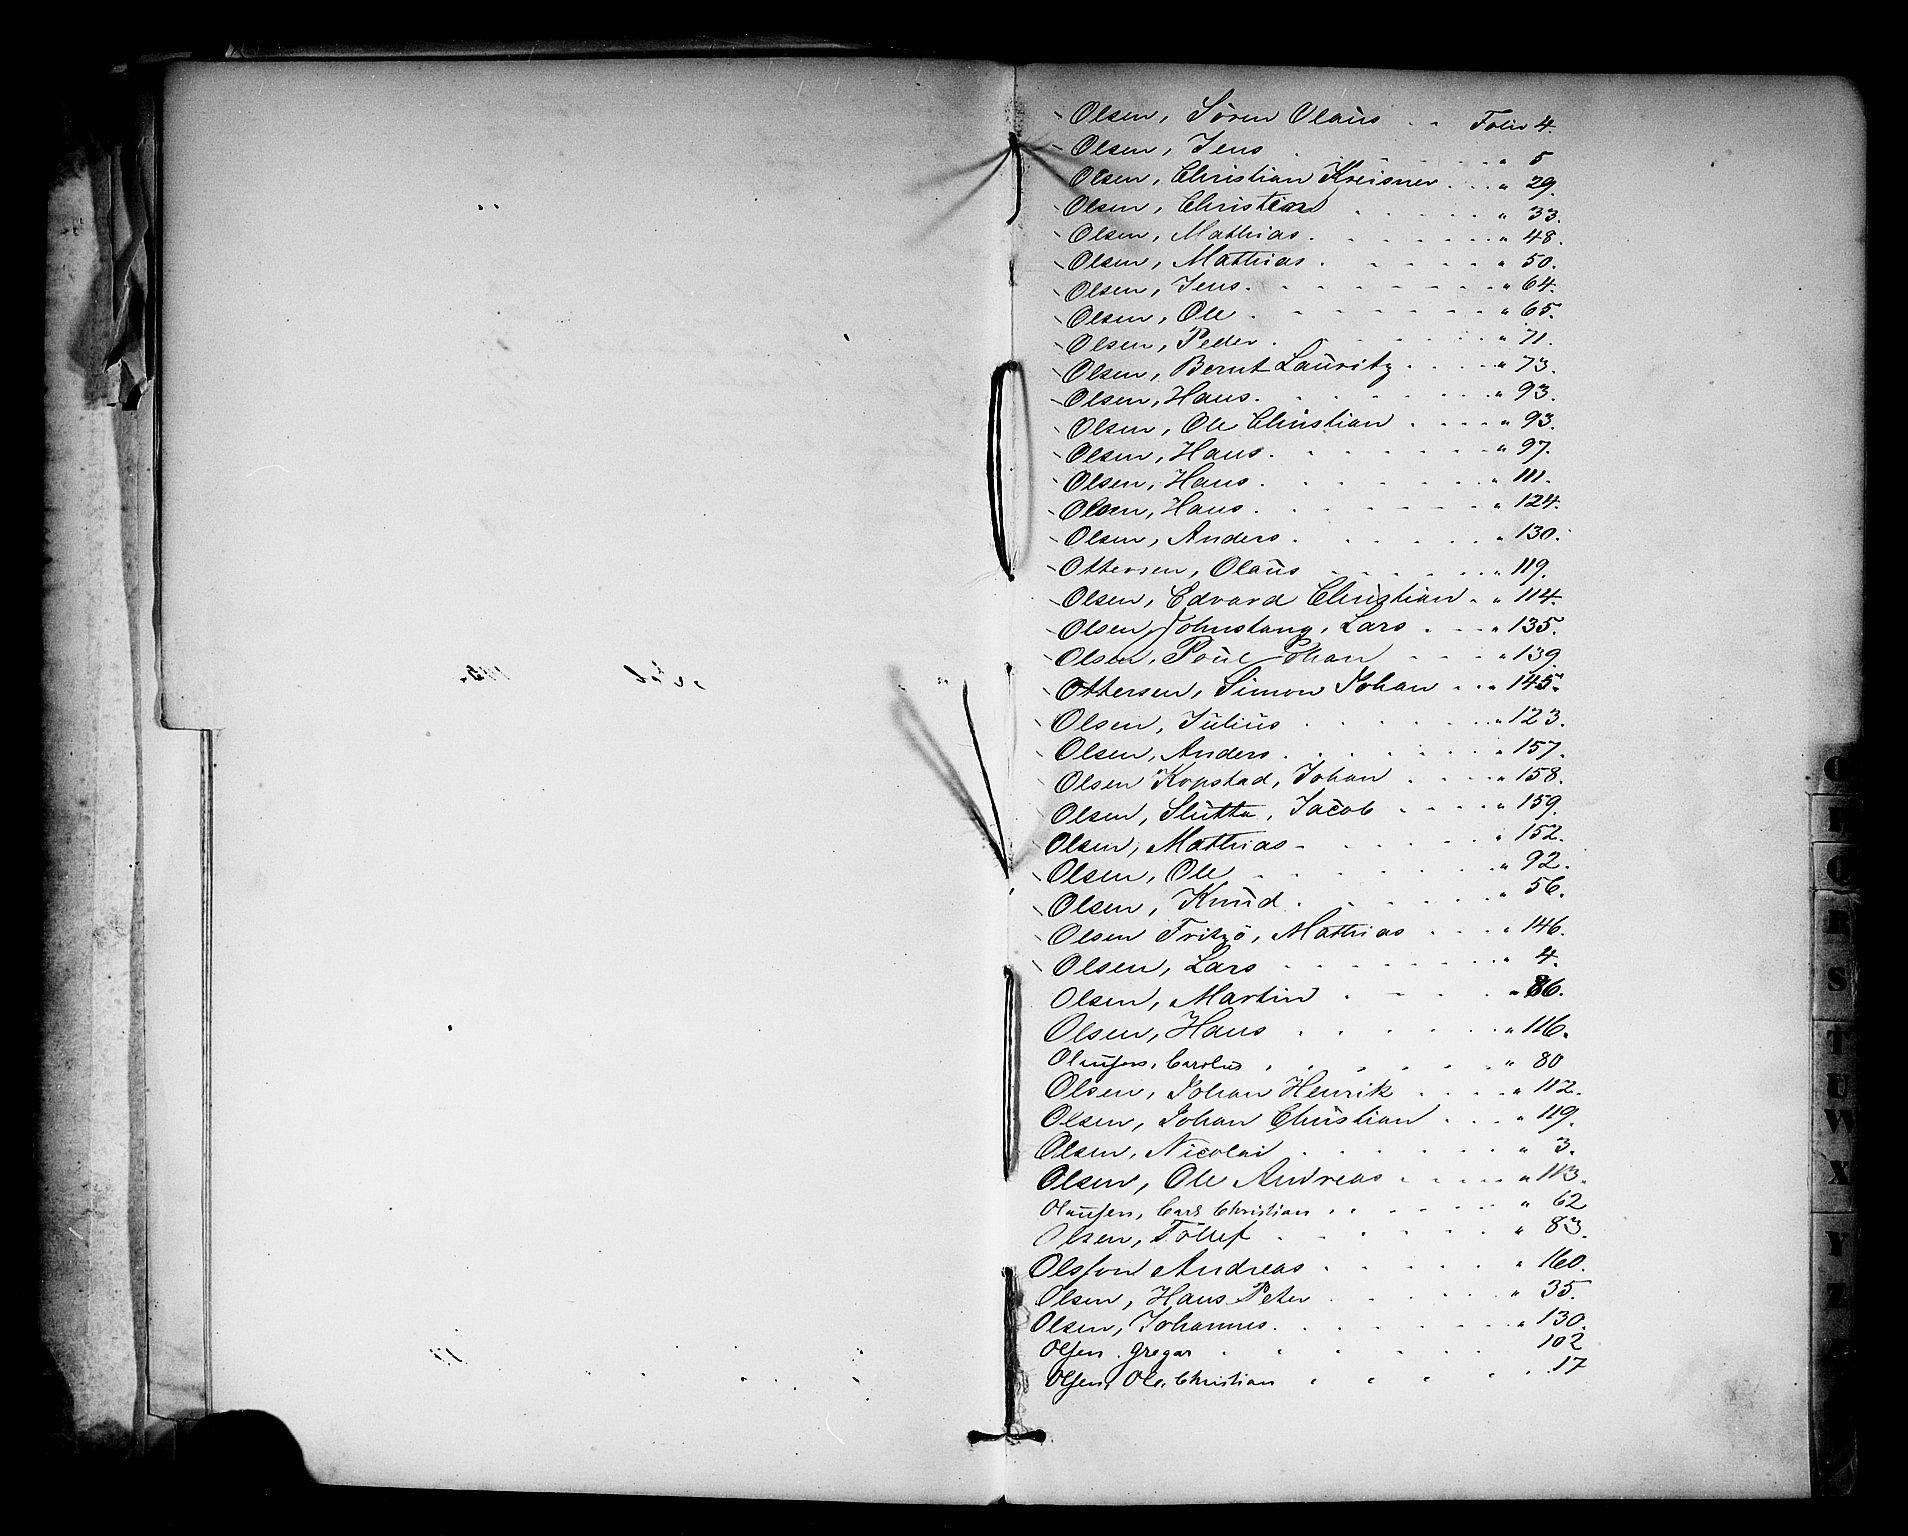 Olsen, Sören Olaus . . Folio 4.
Olsen, Jens . . . . . " 5
Olsen, Christian Kreisner . . . " 29.
Olsen, Christian . . . . " 33.
Olsen, Mathias . . . . . " 48.
Olsen, Mathias . . . . . " 50.
Olsen, Jens . . . . . . " 64.
Olsen, Ole . . . . . . " 65.
Olsen, Peder . . . . . " 71.
Olsen, Bernt Lauritz . . . . " 73.
Olsen, Hans . . . . . . " 93.
Olsen, Ole Christian . . . . " 93.
Olsen, Hans . . . . . . " 97.
Olsen, Hans . . . . . . " 111.
Olsen, Hans . . . . . . " 124.
Olsen, Anders . . . . . " 130.
Ottersen, Olaus . . . . . " 119.
Olsen, Edvard Christian . " 114.
Olsen Johnstang, Lars . . . " 135.
Olsen, Poul Johan . . . " 139
Ottersen, Simon Johan . . " 145.
Olsen, Julius . . . . . " 123.
Olsen, Anders . . . . . " 157.
Olsen Kopstad, Johan . . . " 158.
Olsen, Slutta, Jacob . . . . " 159.
Olsen, Mathias . . . . . " 152.
Olsen, Ole . . . . . . " 92.
Olsen, Knud . . . . . " 56.
Olsen Fritzö, Mathias . . . " 146.
Olsen, Lars . . . . . . " 4.
Olsen, Martin . . . . " 86.
Olsen, Hans . . . . . " 116.
Olausen, Carolus . . . . . " 80
Olsen, Johan Henrik . . . . " 112.
Olsen, Johan Christian . . . " 119.
Olsen, Nicolai . . . . . " 3.
Olsen, Ole Andreas . . . . " 113.
Olausen, Carl Christian . . . . . " 62
Olsen, Tollef . . . . . . " 83.
Olsson Andreas . . . . . " 160.
Olsen, Hans Peter . . . . . " 35.
Olsen, Johannes . . . . . . " 130.
Olsen . Gregar . . . . . 102
Olsen, Ole Christian . . . . . 17
O
P
Q
R
S
T
U
W
X
Y
Z